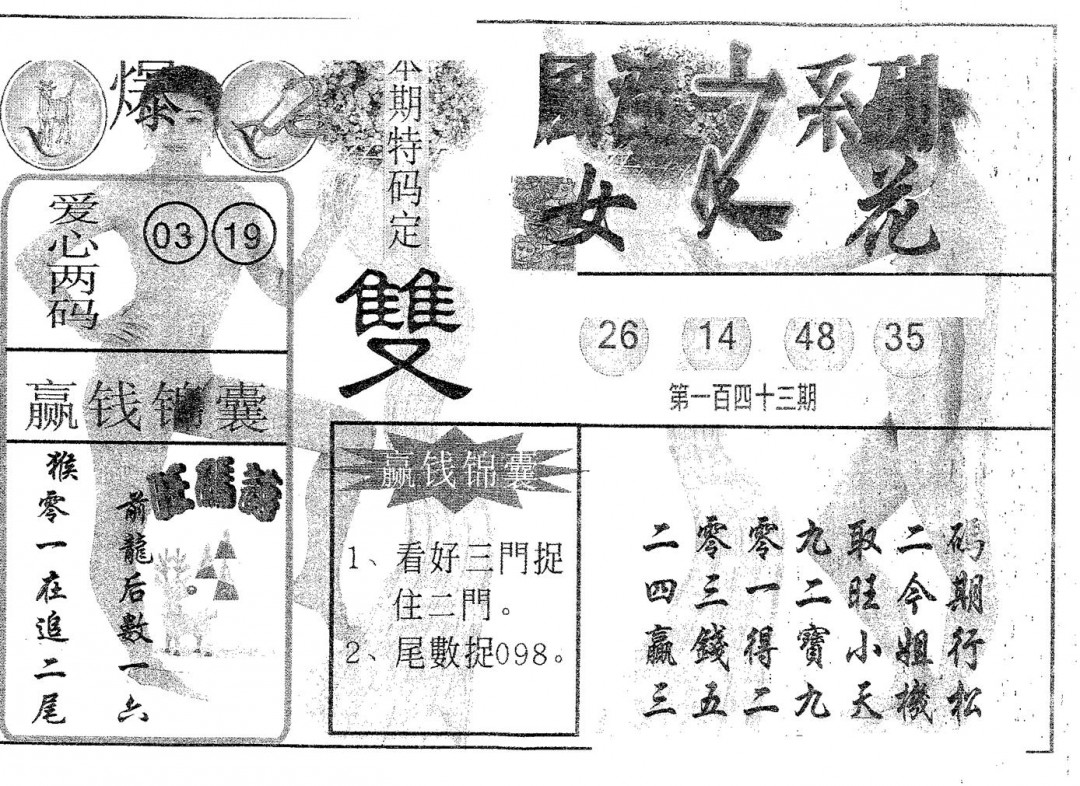 爆
本期特码定
雙
系列
女人花
爱心两码
03 19
26 14 48 35
第一百四十三期
赢钱锦囊
旺碼詩
前龍后数一六
猴零一在追二尾
赢钱锦囊
1、看好三門捉
住二門。
2、尾數捉098。
二零零九取二码
四三一二旺今期
赢錢得寶小姐行
三五二九天機松